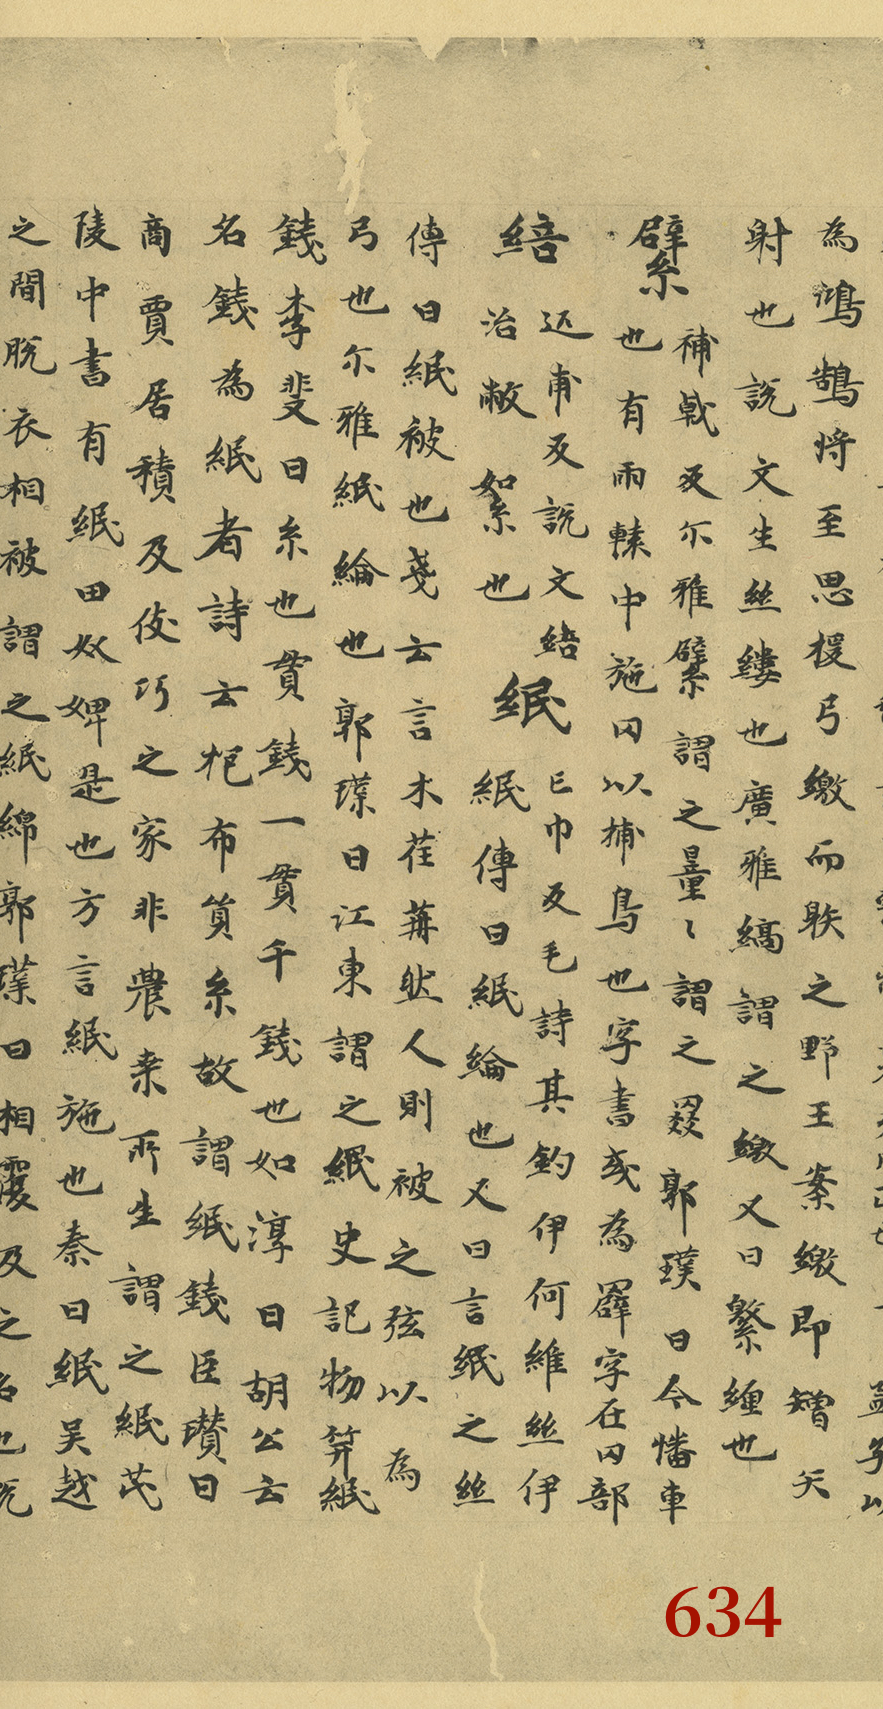 為鴻鵠將至思援弓繳而䠶之野王案繳即矰矢
射也說文生絲縷也廣雅縞謂之繳又曰繁纏也
糪補戟反尒雅繴謂之罿〻謂之罬郭璞曰今幡車
也有兩轅中施罔以捕鳥也字書或為䍤字在罔部
綌近甫反說文綌
治敝絮也
緍亡巾反毛詩其釣伊何維絲伊
緍傳曰緍綸也又曰言緍之絲
傳曰緍被也戔云言木荏苒然人則被之弦以為
弓也尒雅緍綸也郭璞曰江東謂之緍史記物筭緍
錢李斐曰糸也貫錢一貫千錢也如淳曰胡公云
名錢為緍者詩云抱布貿糸故謂緍錢臣瓚曰
商賈居積及伎巧之家非農桒所生謂之緍茂
陵中書有緍田奴婢是也方言緍施也秦曰緍吴越
之間脫衣相被謂之緍綿郭璞曰相覆及之名也
634